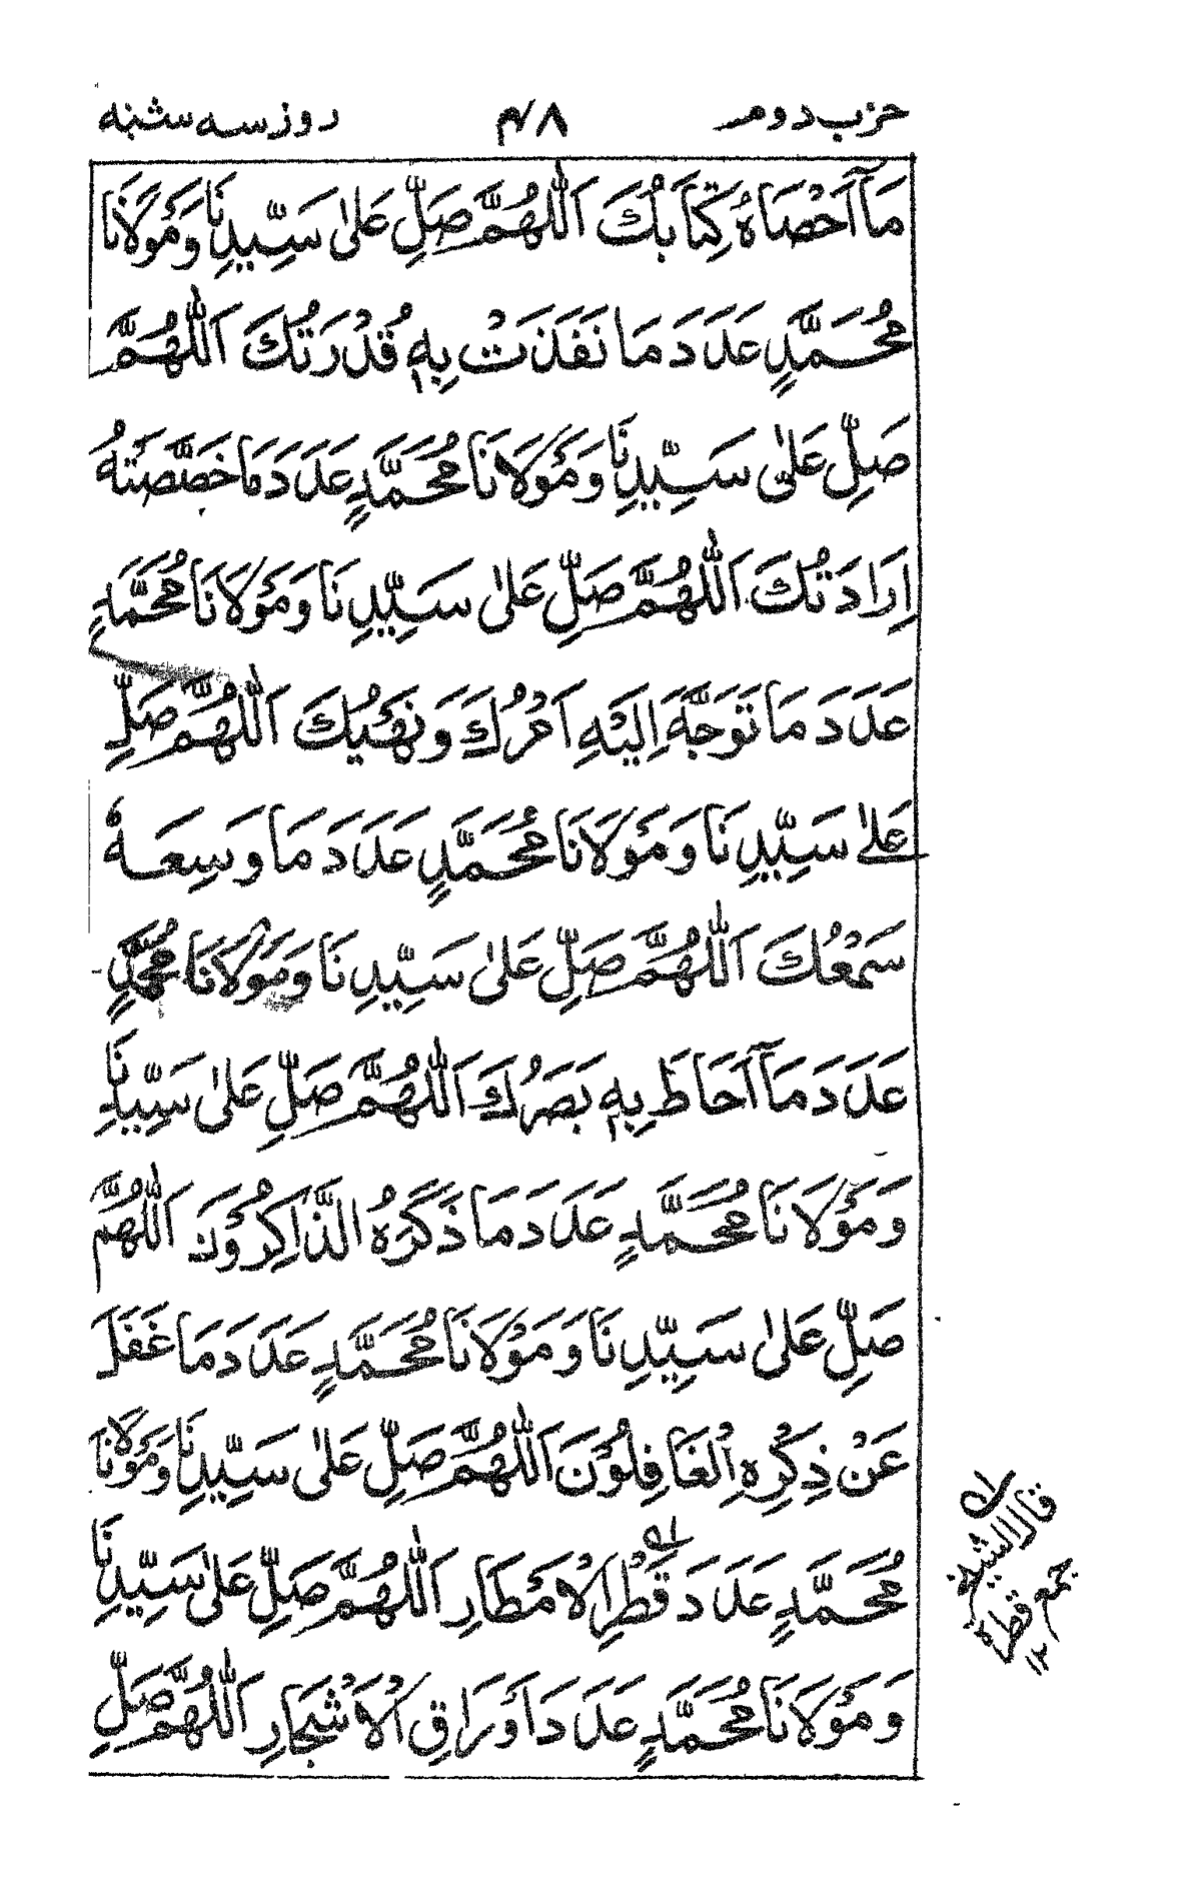 حزب دوم ۴۸ روز سه شنبه
مَآ اَحْصَاهُ كِتَابُكَ اَللّٰهُمَّ صَلِّ عَلٰى سَيِّدِنَا وَمَوْلَانَا
مُحَمَّدٍ عَدَدَ مَا نَفَذَتْ بِهٖ قُدْرَتُكَ اَللّٰهُمَّ
صَلِّ عَلٰى سَيِّدِنَا وَمَوْلَانَا مُحَمَّدٍ عَدَدَ مَا خَصَّصَتْهُ
اِرَادَتُكَ اَللّٰهُمَّ صَلِّ عَلٰى سَيِّدِنَا وَمَوْلَانَا مُحَمَّدٍ
عَدَدَ مَا تَوَجَّهَ اِلَيْهِ اَمْرُكَ وَنَهْيُكَ اَللّٰهُمَّ صَلِّ
عَلٰى سَيِّدِنَا وَمَوْلَانَا مُحَمَّدٍ عَدَدَ مَا وَسِعَهٗ
سَمْعُكَ اَللّٰهُمَّ صَلِّ عَلٰى سَيِّدِنَا وَمَوْلَانَا مُحَمَّدٍ
عَدَدَ مَآ اَحَاطَ بِهٖ بَصَرُكَ اَللّٰهُمَّ صَلِّ عَلٰى سَيِّدِنَا
وَمَوْلَانَا مُحَمَّدٍ عَدَدَ مَا ذَكَرَهُ الذَّاكِرُوْنَ اَللّٰهُمَّ
صَلِّ عَلٰى سَيِّدِنَا وَمَوْلَانَا مُحَمَّدٍ عَدَدَ مَا غَفَلَ
عَنْ ذِكْرِهِ الْغَافِلُوْنَ اَللّٰهُمَّ صَلِّ عَلٰى سَيِّدِنَا وَمَوْلَانَا
مُحَمَّدٍ عَدَدَ قَطْرِ الْاَمْطَارِ اَللّٰهُمَّ صَلِّ عَلٰى سَيِّدِنَا
وَمَوْلَانَا مُحَمَّدٍ عَدَدَ اَوْرَاقِ الْاَشْجَارِ اَللّٰهُمَّ صَلِّ
قال الشيخ
جمع قطرة ۱۲